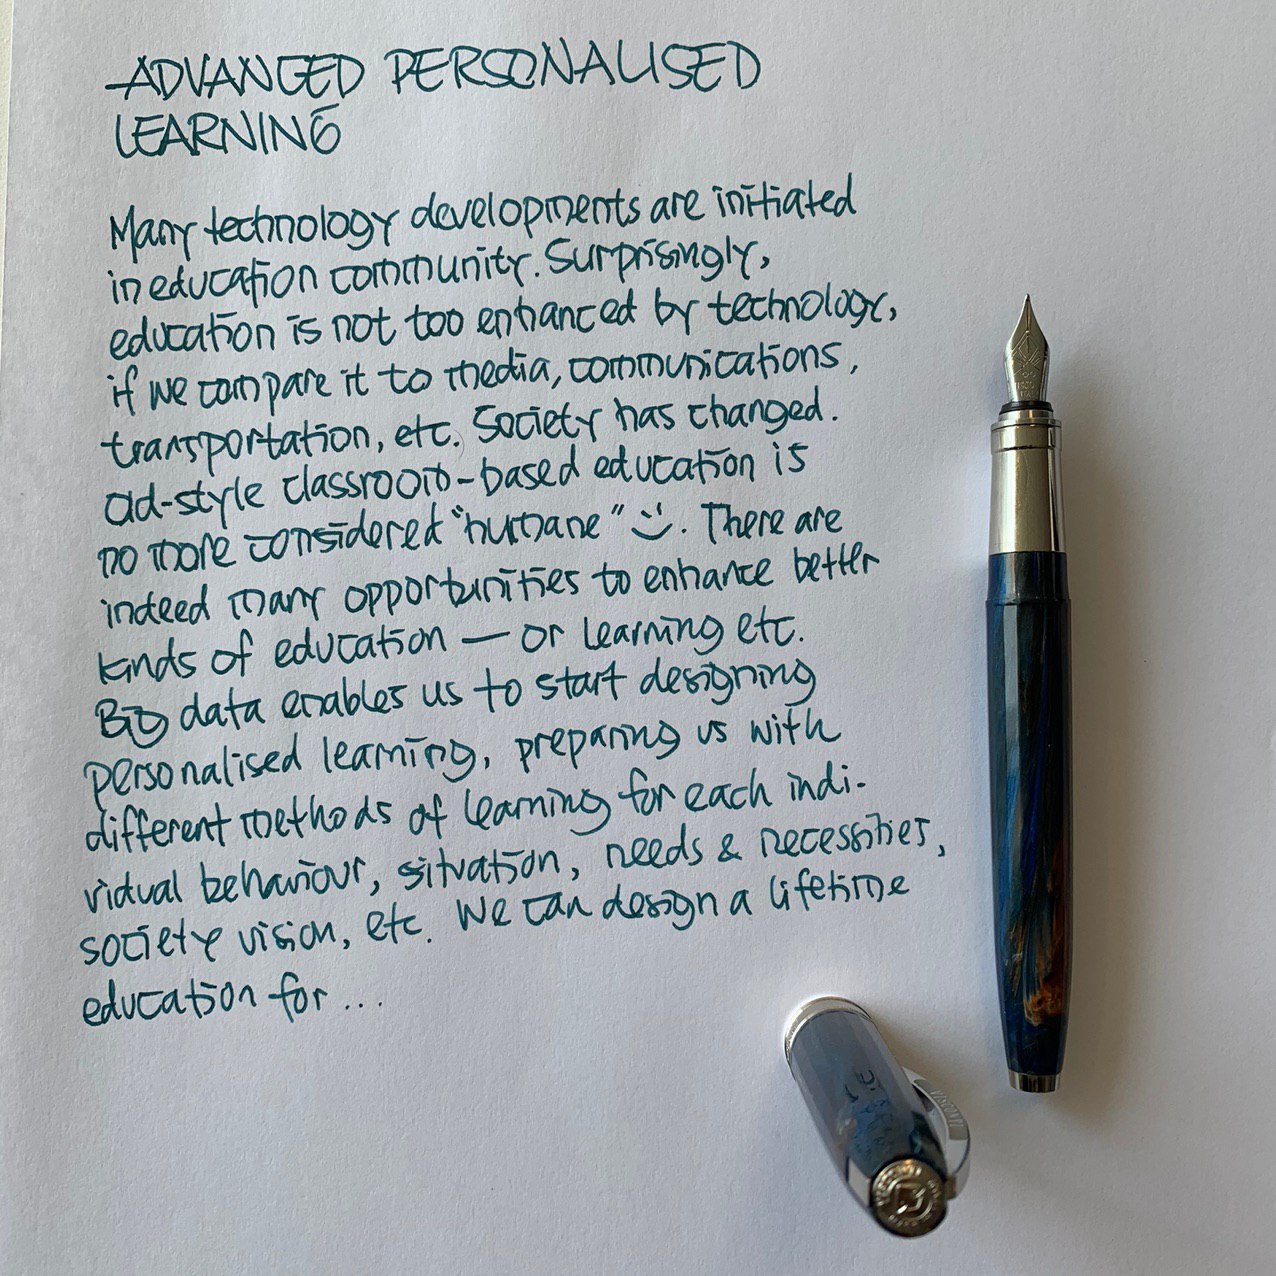 ADVANCED PERSONALISED
LEARNING
Many technology developments are initiated
in education community. Surprisingly,
education is not too enhanced by technology,
if we compare it to media, communications,
transportation, etc. Society has changed.
Old-style classroom-based education is
no more considered "humane" :). There are
indeed many opportunities to enhance better
kinds of education — or learning etc.
Big data enables us to start designing
personalised learning, preparing us with
different methods of learning for each indi-
vidual behaviour, situation, needs & necessities,
society vision, etc. We can design a lifetime
education for ...
VISCONTI